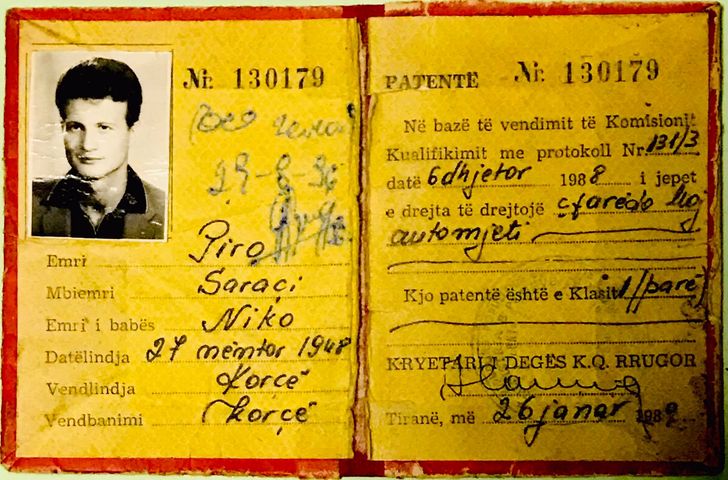 Nr. 130179
29-8-96
Emri Piro
Mbiemri Saraçi
Emri i babës Niko
Datëlindja 27 nëntor 1948
Vendlindja Korçë
Vendbanimi Korçë
PATENTË Nr. 130179
Në bazë të vendimit të Komisionit
Kualifikimit me protokoll Nr. 131/3
datë 6 dhjetor 1988 i jepet
e drejta të drejtojë çfarëdo lloj
automjeti
Kjo patentë është e Klasit 1/parë/
KRYETARI I DEGËS K.Q. RRUGOR
Tiranë, më 26 janar 1989